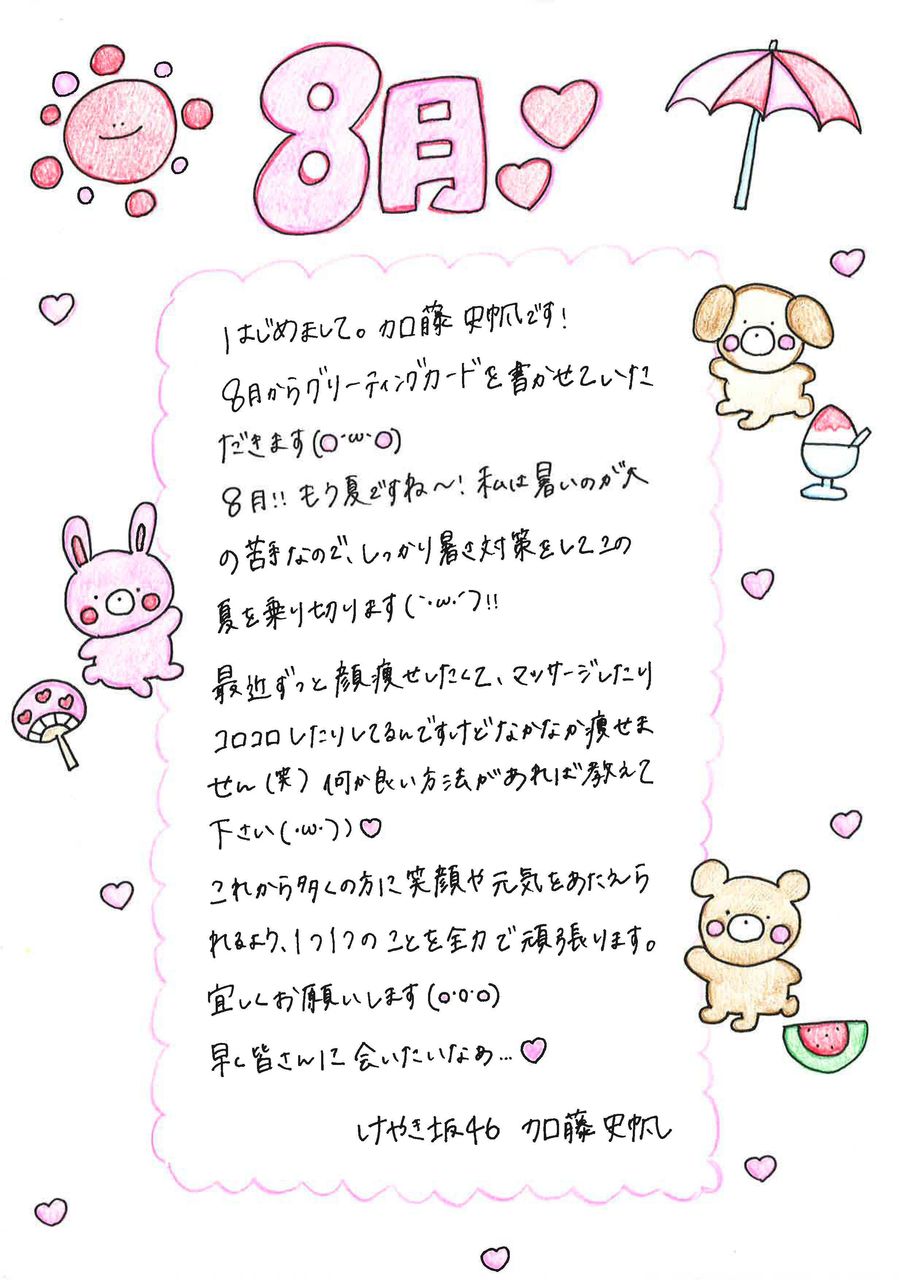 8月
はじめまして。加藤史帆です!
8月からグリーティングカードを書かせていた
だきます(○・ω・○)
8月!!もう夏ですね〜!私は暑いのが大
の苦手なので、しっかり暑さ対策をしてこの
夏を乗り切ります(｀・ω・´)!!
最近ずっと顔痩せしたくて、マッサージしたり
コロコロしたりしてるんですけどなかなか痩せま
せん(笑)何か良い方法があれば教えて
下さい(・ω・))♡
これから多くの方に笑顔や元気をあたえら
れるよう、1つ1つのことを全力で頑張ります。
宜しくお願いします(○・○・○)
早く皆さんに会いたいなぁ…♡
けやき坂46 加藤史帆